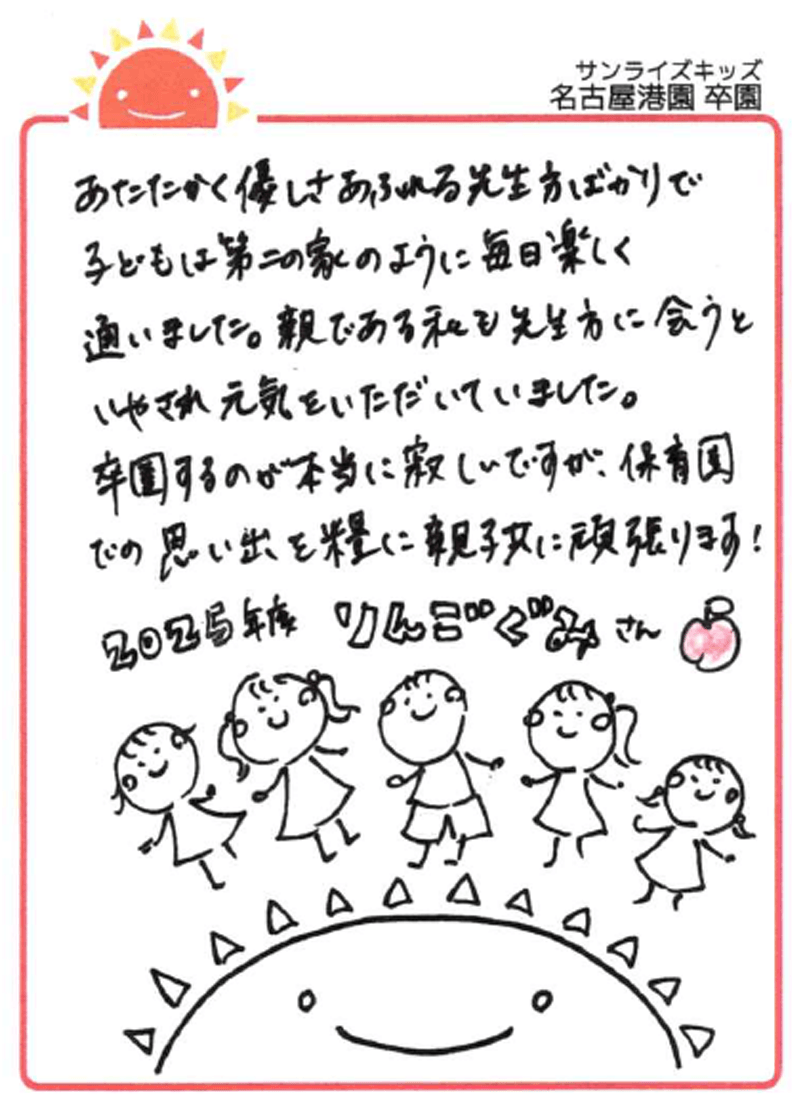 サンライズキッズ
名古屋港園 卒園
あたたかく優しさあふれる先生方ばかりで
子どもは第二の家のように毎日楽しく
通いました。親である私も先生方に会うと
いやされ元気をいただいていました。
卒園するのが本当に寂しいですが、保育園
での思い出を糧に親子共に頑張ります!
2025年度 りんごぐみさん